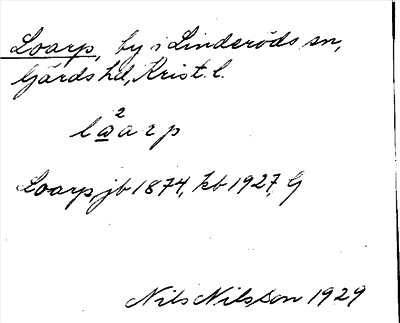 Loarp, by i Linderöds sn,
Gärds hd, Krist. l.
lå²arp
Loarp, jb 1874, kb 1927, G
Nils Nilsson 1929